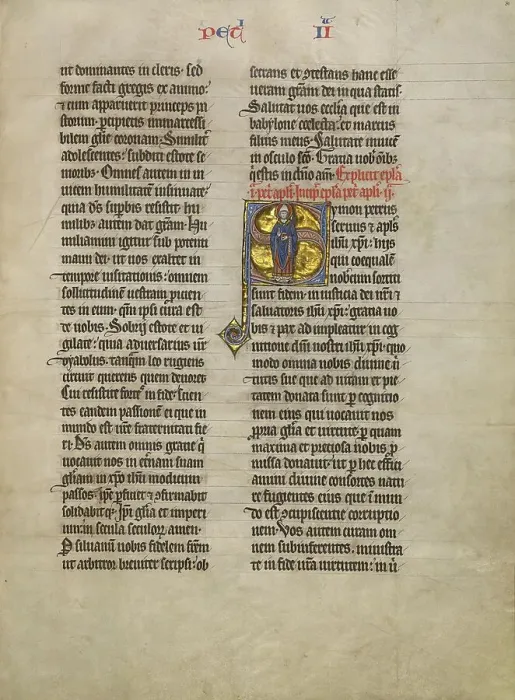 PETRI II
ut dominantes in cleris. sed
forme facti gregis ex animo.
⁊ cum apparuerit princeps pa
storum. percipietis immarcessi
bilem glie coronam. Similiter
adolescentes: subditi estote se
nioribꝫ. Omnes autem in in
uicem humilitatem insinuate.
quia ds supbis resistit. hu
milibꝫ autem dat gram. Hu
miliamini igitur sub potenti
manu dei. ut uos exaltet in
tempore uisitationis: omnem
sollicitudinem uestram proicien
tes in eum. qm ipsi cura est
de uobis. Sobrij estote et ui
gilate: quia aduersarius ur
dyabolus. tanqm leo rugiens
circuit querens quem deuoret
Cui resistite fortes in fide: scien
tes eandem passionem ei que in
mundo est ure fraternitati fie
ri. Ds autem omnis gratie q
uocauit nos in eternam suam
gliam in xpo ihu modicum
passos. ipe pficiet ⁊ ɔfirmabit
solidabitq. Ipi glia et imperi
um in secula seculorum amen.
P siluanum uobis fidelem frem
ut arbitror breuiter scripsi: ob
secrans et ɔtestans hanc esse
ueram gram dei in qua statis.
Salutat uos ecclia que est in
babylone coelecta. et marcus
filius meus. Salutate inuicem
in osculo sco. Gratia uob omibꝫ
q estis in xpo am. Explicit epla
i. petri apli. Incipit epla petri apli. ij.
Symon petrus
seruus ⁊ apls
ihu xpi: hijs
qui coequalem
nobiscum sortiti
sunt fidem. in iusticia dei nri ⁊
saluatoris ihu xpi: gratia uo
bis ⁊ pax adimpleatur in cog
nitione dni nostri ihu xpi: quo
modo omnia nobis diuine uir
tutis sue que ad uitam et pie
tatem donata sunt p cognitio
nem eius qui uocauit nos
ppria glia et uirtute. p quam
maxima et preciosa nobis p
missa donauit. ut p hec effici
amini diuine consortes natu
re fugientes eius que in mun
do est ɔcupiscentie corruptio
nem. Vos autem curam om
nem subinferentes. ministra
te in fide ura uirtutem: in uir